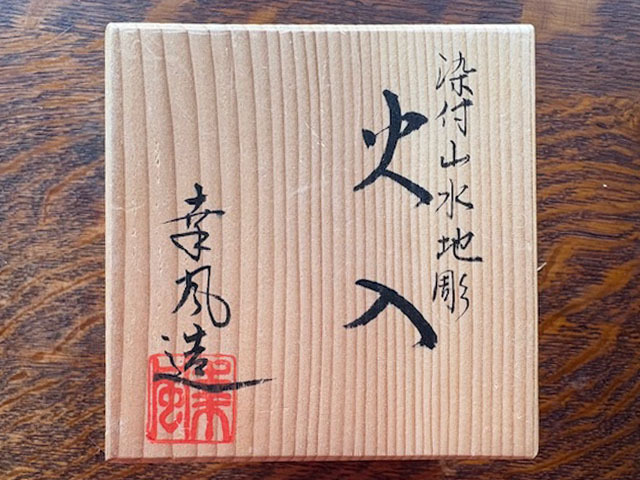 染付山水地彫
火入
幸風造
幸風